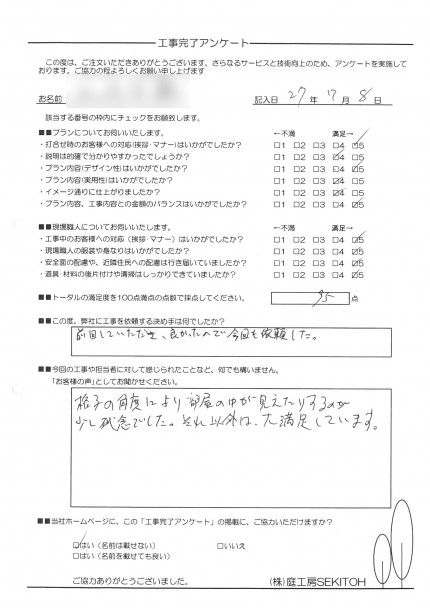 工事完了アンケート
この度は、ご注文いただきありがとうございます。さらなるサービスと技術向上のため、アンケートを実施して
おります。ご協力の程よろしくお願い申し上げます
お名前
記入日 27 年 7 月 8 日
該当する番号の枠内にチェックをお願致します。
■■プランについてお伺いいたします。 ←不満 満足→
・打合せ時のお客様への対応(挨拶・マナー)はいかがでしたか? □1 □2 □3 □4 ☑5
・説明は的確で分かりやすかったでしょうか? □1 □2 □3 ☑4 □5
・プラン内容(デザイン性)はいかがでしたか? □1 □2 □3 □4 ☑5
・プラン内容(実用性)はいかがでしたか? □1 □2 □3 ☑4 □5
・イメージ通りに仕上がりましたか? □1 □2 □3 ☑4 □5
・プラン内容、工事内容との金額のバランスはいかがでしたか? □1 □2 □3 □4 ☑5
■■現場職人についてお伺いいたします。 ←不満 満足→
・工事中のお客様への対応(挨拶・マナー)はいかがでしたか? □1 □2 □3 □4 ☑5
・現場職人の服装や身なりはいかがでしたか? □1 □2 □3 □4 ☑5
・安全面の配慮や、近隣住民への配慮は行き届いていましたか? □1 □2 □3 □4 ☑5
・道具・材料の後片付けや清掃はしっかりできていましたか? □1 □2 □3 □4 ☑5
■■トータルの満足度を100点満点の点数で採点してください。 95 点
■■この度、弊社に工事を依頼する決め手は何でしたか?
前回していただき、良かったので今回も依頼した。
■■今回の工事や担当者に対して感じられたことなど、何でも構いません。
「お客様の声」としてお聞かせください。
格子の角度により部屋の中が見えたりするのが
少し残念でした。それ以外は、大満足しています。
■■当社ホームページに、この「工事完了アンケート」の掲載に、ご協力いただけますか?
☑はい(名前は載せない) □いいえ
□はい(名前を載せても良い)
ご協力ありがとうございました。
(株)庭工房SEKITOH